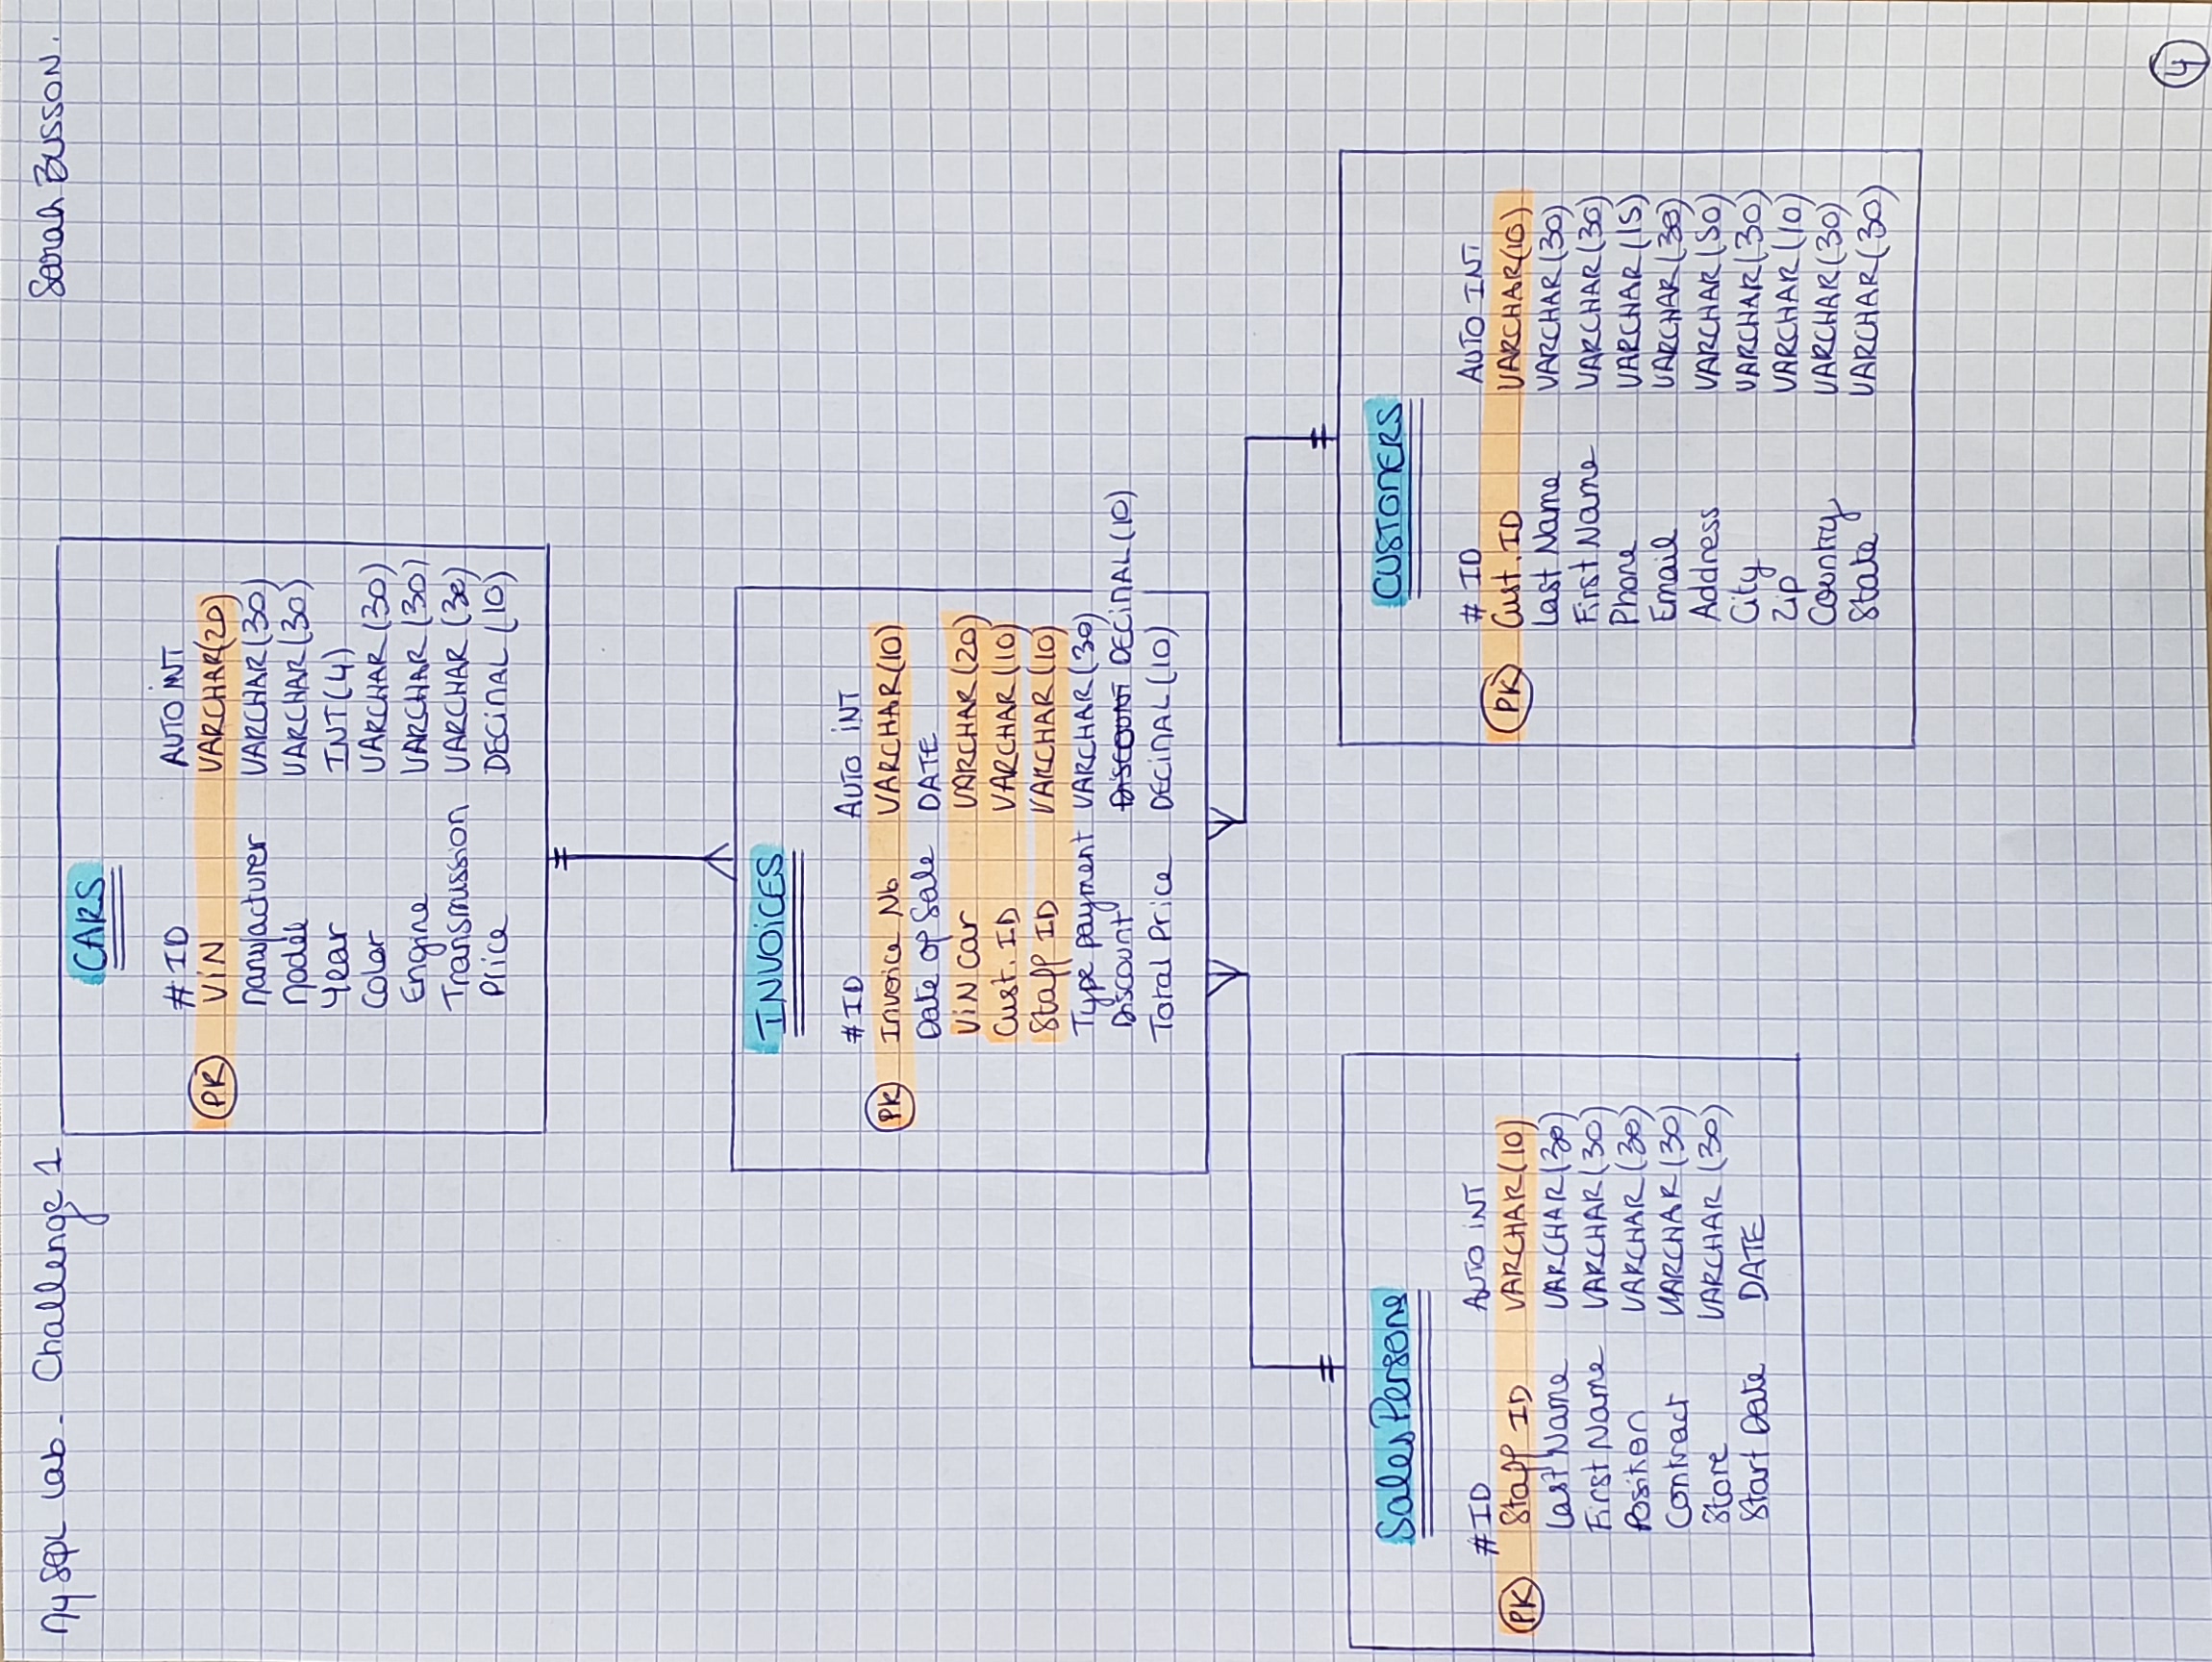 My SQL Lab - Challenge 1
Sarah BUSSON.
CARS
# ID AUTO INT
PK VIN VARCHAR(20)
Manufacturer VARCHAR(30)
Model VARCHAR(30)
Year INT(4)
Color VARCHAR (30)
Engine VARCHAR (30)
Transmission VARCHAR (30)
Price DECIMAL (10)
INVOICES
# ID AUTO INT
PK Invoice Nb VARCHAR(10)
Date of Sale DATE
VIN car VARCHAR (20)
Cust. ID VARCHAR (10)
Staff ID VARCHAR (10)
Type payment VARCHAR (30)
Discount DISCOUNT DECIMAL (10)
Total Price DECIMAL (10)
Sales Persons
# ID AUTO INT
PK Staff ID VARCHAR(10)
Last Name VARCHAR(30)
First Name VARCHAR(30)
Position VARCHAR (30)
Contract VARCHAR (30)
Store VARCHAR (30)
Start Date DATE
CUSTOMERS
# ID AUTO INT
PK Cust. ID VARCHAR(10)
Last Name VARCHAR (30)
First Name VARCHAR (30)
Phone VARCHAR (15)
Email VARCHAR (30)
Address VARCHAR (50)
City VARCHAR (30)
Zip VARCHAR (10)
Country VARCHAR (30)
State VARCHAR (30)
4